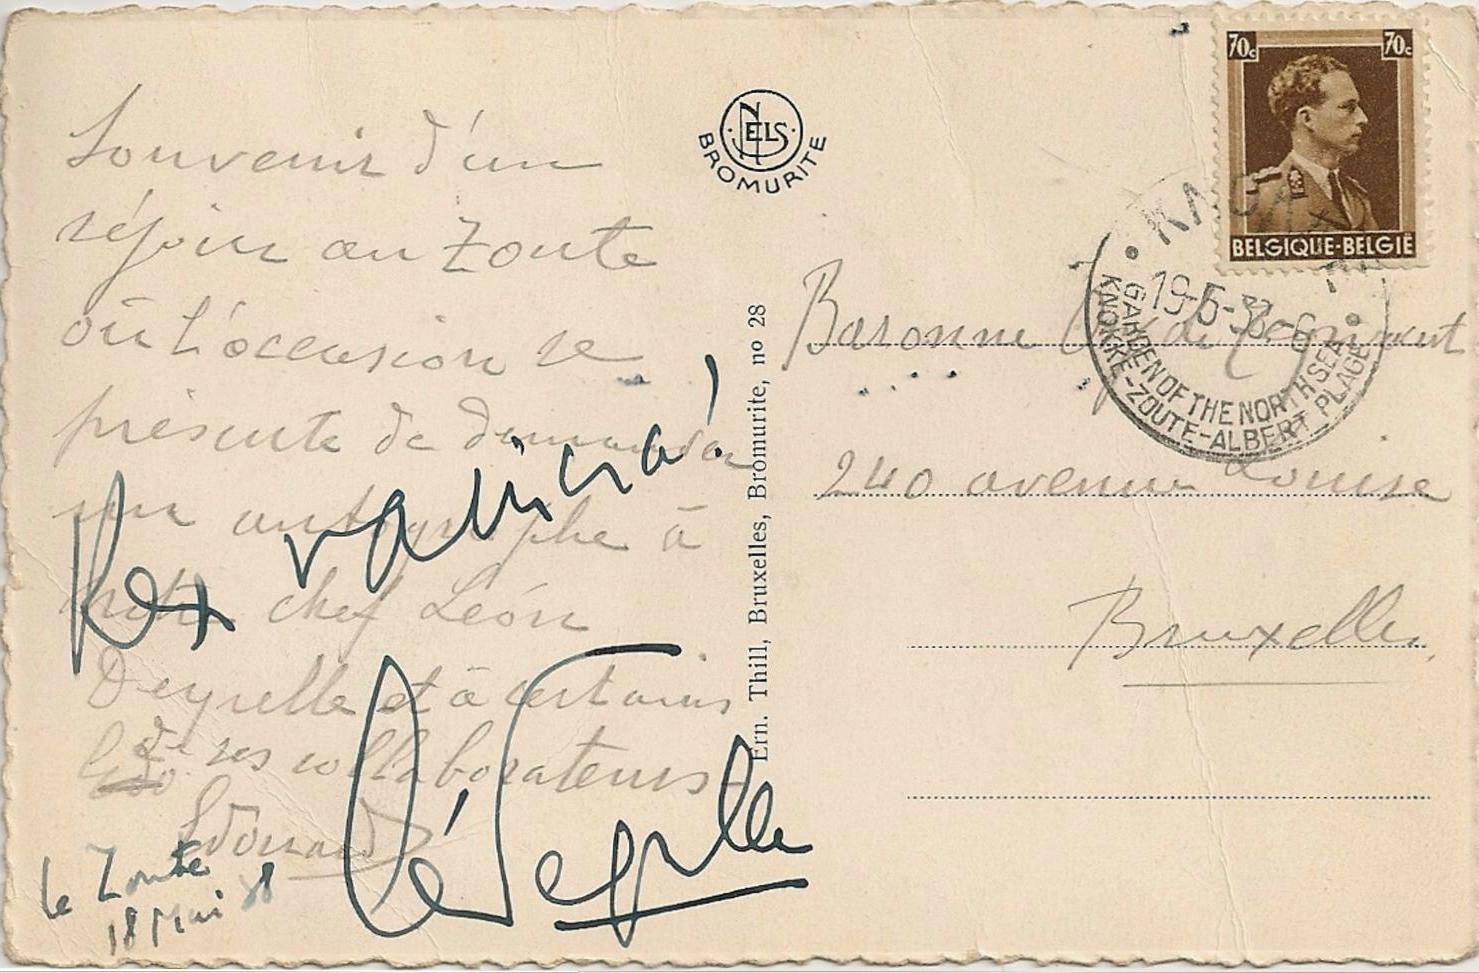 Souvenir d'un
séjour au Zoute
où l'occasion se
présente de demander
un autographe à
notre chef Léon
Degrelle et à certains
de ses collaborateurs
Edouard
Rex vaincra!
le Zoute
18 Mai 38
NELS
BROMURITE
Ern. Thill, Bruxelles, Bromurite, no 28
70c 70c
BELGIQUE-BELGIË
19-5-38
GARDEN OF THE NORTH SEA
KNOKKE-ZOUTE-ALBERT PLAGE
Baronne de
240 avenue Louise
Bruxelles